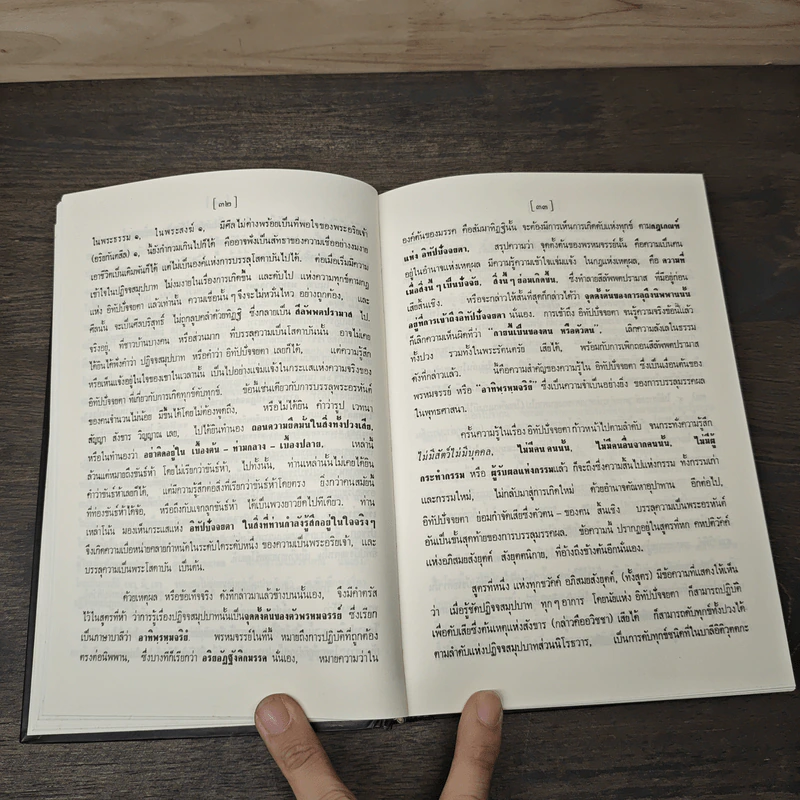 [ ๓๒ ]
ในพระธรรม ๑, ในพระสงฆ์ ๑, มีศีลไม่ด่างพร้อยเป็นที่พอใจของพระอริยเจ้า
(อริยกันตศีล) ๑, นี้ยังกำกวมเกินไปก็ได้ คืออาจฟังเป็นสัทธาของความเชื่ออย่างงมงาย
เอาชีวิตเป็นเดิมพันก็ได้ แต่ไม่เป็นองค์แห่งการบรรลุโสดาบันไปได้. ต่อเมื่อเริ่มมีความ
เข้าใจในปฏิจจสมุปบาท ไม่งมงายในเรื่องการเกิดขึ้น และดับไป แห่งความทุกข์ตามกฎ
แห่ง อิทัปปัจจยตา แล้วเท่านั้น ความเชื่อนั้น ๆ จึงจะไม่หวั่นไหว อย่างถูกต้อง, และ
ศีลนั้น จะเป็นศีลบริสุทธิ์ ไม่ถูกลูบคลำด้วยทิฏฐิ ซึ่งกลายเป็น สีลัพพตปรามาส ไป.
จริงอยู่, ที่ชาวบ้านบางคน หรือส่วนมาก ที่บรรลุความเป็นโสดาบันนั้น อาจไม่เคย
ได้ยินได้ฟังคำว่า ปฏิจจสมุปบาท หรือคำว่า อิทัปปัจจยตา เลยก็ได้, แต่ความรู้สึก
หรือเห็นแจ้งอยู่ในใจของเขาในเวลานั้น เป็นไปอย่างแจ่มแจ้ง ในกระแสแห่งความจริงของ
อิทัปปัจจยตา ที่เกี่ยวกับการเกิดทุกข์ดับทุกข์. ข้อนี้เช่นเดียวกับการบรรลุพระอรหันต์
ของคนจำนวนไม่น้อย มีขึ้นได้โดยไม่ต้องพูดถึง, หรือไม่ได้ยิน คำว่ารูป เวทนา
สัญญา สังขาร วิญญาณ เลย, ไปได้ยินทำนอง ถอนความยึดมั่นในสิ่งทั้งปวงเสีย,
หรือในทำนองว่า อย่าติดอยู่ใน เบื้องต้น - ท่ามกลาง - เบื้องปลาย. เหล่านี้
ล้วนแต่หมายถึงขันธ์ห้า โดยไม่เรียกว่าขันธ์ห้า, ไปทั้งนั้น, ท่านเหล่านั้นไม่เคยได้ยิน
คำว่าขันธ์ห้าเลยก็ได้, แต่มีความรู้สึกต่อสิ่งที่เรียกว่าขันธ์ห้าโดยตรง ยิ่งกว่าคนสมัยนี้
ที่ท่องขันธ์ห้าได้จ้อ, หรือถึงกับแจกลูกขันธ์ห้า ได้เป็นพวงยาวยืดไปทีเดียว. ท่าน
เหล่านั้น มองเห็นกระแสแห่ง อิทัปปัจจยตา ในสิ่งที่ท่านกำลังรู้สึกอยู่ในใจจริง ๆ
จึงเกิดความเบื่อหน่ายคลายกำหนัดในระดับใดระดับหนึ่ง ของความเป็นพระอริยเจ้า, และ
บรรลุความเป็นพระโสดาบัน เป็นต้น.
ด้วยเหตุผล หรือข้อเท็จจริง ดังที่กล่าวมาแล้วข้างบนนั้นเอง, จึงมีคำตรัส
ไว้ในสูตรที่ห้า ว่าการรู้เรื่องปฏิจจสมุปบาทนั้นเป็นจุดตั้งต้นของตัวพรหมจรรย์ ซึ่งเรียก
เป็นภาษาบาลีว่า อาทิพรหมจริยํ. พรหมจรรย์ในที่นี้ หมายถึงการปฏิบัติที่ถูกต้อง
ตรงต่อนิพพาน, ซึ่งบางทีก็เรียกว่า อริยอัฏฐังคิกมรรค นั่นเอง, หมายความว่าใน
[ ๓๓ ]
องค์ต้นของมรรค คือสัมมาทิฏฐินั้น จะต้องมีการเห็นการเกิดดับแห่งทุกข์ ตามกฎเกณฑ์
แห่ง อิทัปปัจจยตา. สรุปความว่า จุดตั้งต้นของพรหมจรรย์นั้น คือความเป็นคน
อยู่ในอำนาจแห่งเหตุผล มีความรู้ความเข้าใจแจ่มแจ้ง ในกฎแห่งเหตุผล, คือ ความที่
เมื่อสิ่งนี้ ๆ เป็นปัจจัย, สิ่งนี้ ๆ ย่อมเกิดขึ้น, ซึ่งทำลายสีลัพพตปรามาส ที่มีอยู่ก่อน
เสียสิ้นเชิง. หรือจะกล่าวให้สั้นที่สุดก็กล่าวได้ว่า จุดตั้งต้นของการลุถึงนิพพานนั้น
อยู่ที่การเข้าถึงอิทัปปัจจยตา นั่นเอง. การเข้าถึง อิทัปปัจจยตา จนรู้ความจริงข้อนี้แล้ว
ก็เลิกความเห็นผิดที่ว่า "กายนี้เป็นของตน หรือตัวตน", เลิกความลังเลในธรรม
ทั้งปวง รวมทั้งในพระรัตนตรัย เสียได้, พร้อมกับการเพิกถอนสีลัพพตปรามาส
ดังที่กล่าวแล้ว. นี้คือความสำคัญของความรู้ใน อิทัปปัจจยตา ซึ่งเป็นเงื่อนต้นของ
พรหมจรรย์ หรือ "อาทิพรหมจริยํ" ซึ่งเป็นความจำเป็นอย่างยิ่ง ของการบรรลุมรรคผล
ในพุทธศาสนา.
ครั้นความรู้ในเรื่อง อิทัปปัจจยตา ก้าวหน้าไปตามลำดับ จนกระทั่งความรู้สึก
ไม่มีสัตว์ไม่มีบุคคล, ไม่มีตน คนนั้น, ไม่มีคนอื่นจากคนนั้น, ไม่มีผู้
กระทำกรรม หรือ ผู้รับผลแห่งกรรมแล้ว ก็จะถึงซึ่งความสิ้นไปแห่งกรรม ทั้งกรรมเก่า
และกรรมใหม่, ไม่กลับมาสู่การเกิดใหม่ ด้วยอำนาจตัณหาอุปาทาน อีกต่อไป,
อิทัปปัจจยตา ย่อมกำจัดเสียซึ่งตัวตน - ของตน สิ้นเชิง บรรลุความเป็นพระอรหันต์
อันเป็นขั้นสุดท้ายของการบรรลุมรรคผล. ข้อความนี้ ปรากฏอยู่ในสูตรที่หก คหปติวัคค์
แห่งอภิสมยสังยุตต์ สังยุตตนิกาย, ที่อ้างถึงข้างต้นอีกนั่นเอง.
สูตรที่หนึ่ง แห่งทุกขวัคค์ อภิสมยสังยุตต์, (ทั้งสูตร) มีข้อความที่แสดงให้เห็น
ว่า เมื่อรู้ชัดปฏิจจสมุปบาท ทุก ๆ อาการ โดยนัยแห่ง อิทัปปัจจยตา ก็สามารถปฏิบัติ
เพื่อดับเสียซึ่งต้นเหตุแห่งสังขาร (กล่าวคืออวิชชา) เสียได้ ก็สามารถดับทุกข์ทั้งปวงได้
ตามลำดับแห่งปฏิจจสมุปบาทส่วนนิโรธวาร, เป็นการดับทุกข์ชนิดที่ในบาลีอิติวุตตกะ